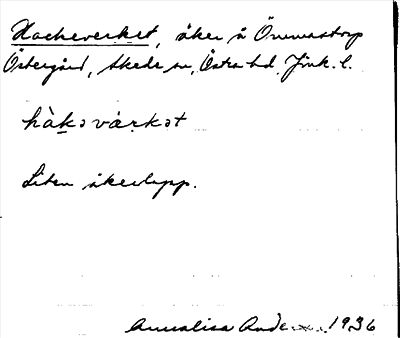 Hackeverket, åker å Ömmastorp
Östergård, Skede sn, Östra hd. Jönk. l.
hàkəvàrkət
Liten åkerlapp.
Annalisa 1936